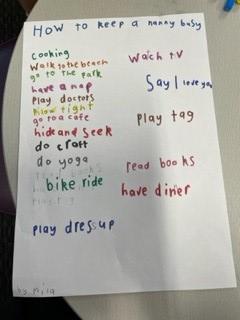 How to keep a nanny busy
cooking
Walk to the beach
go to the park
have a nap
Play doctors
Pilow fight
go to a cafe
hide and seek
do craft
do yoga
bike ride
play dress up
Wach tv
Say I love you
Play tag
read books
have diner
by mila